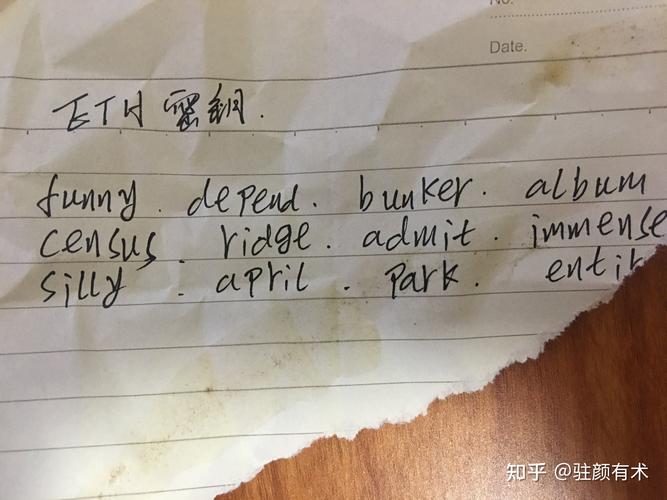 No.
Date.
ETH 密钥.
funny. depend. bunker. album
census. ridge. admit. immense
silly. april. park. entir
知乎 @驻颜有术